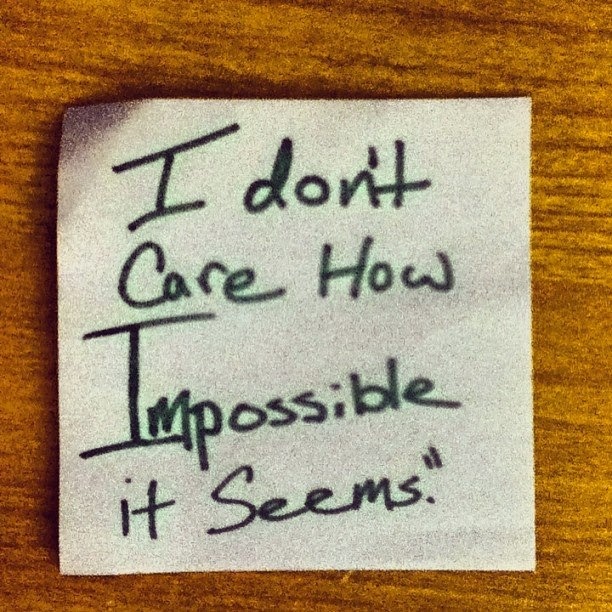 I don't
Care How
Impossible
it Seems."